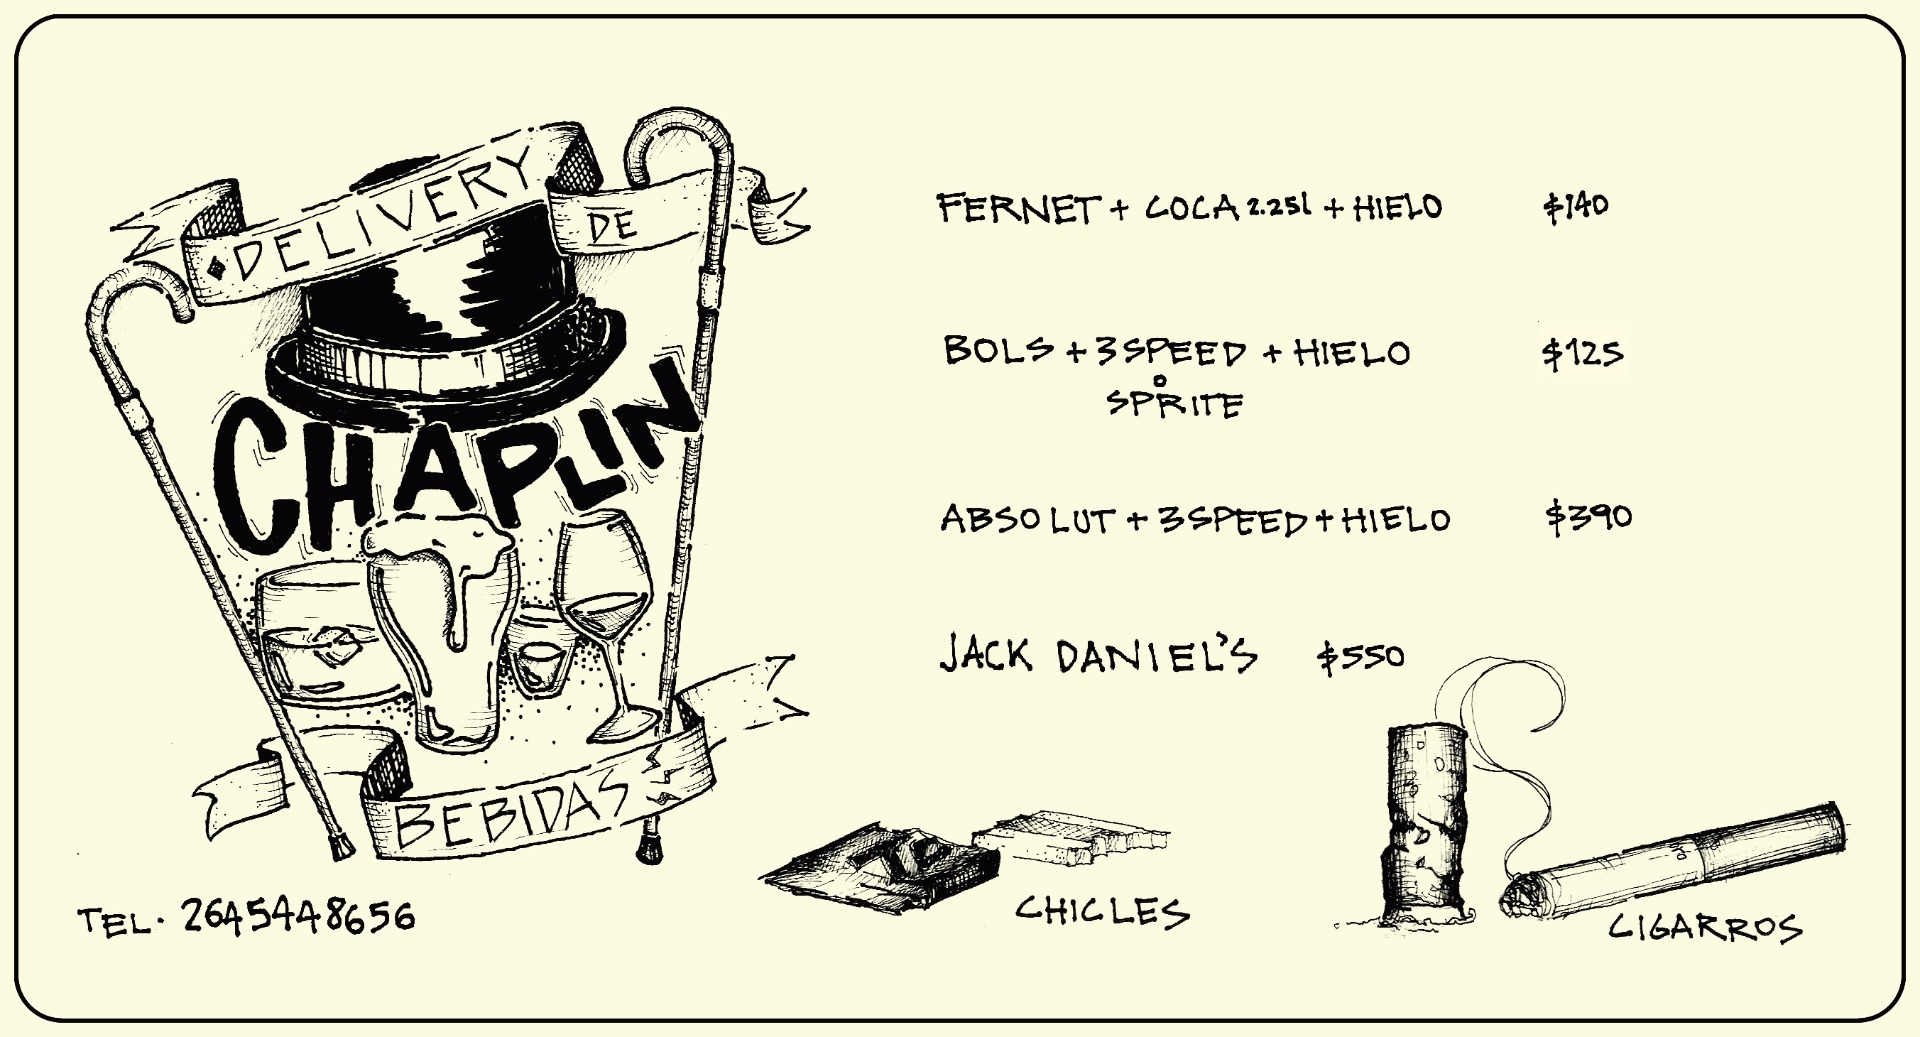 DELIVERY DE
CHAPLIN
BEBIDAS
TEL. 2645448656
FERNET + COCA 2.25l + HIELO $140
BOLS + 3 SPEED + HIELO $125
o
SPRITE
ABSOLUT + 3 SPEED + HIELO $390
JACK DANIEL'S $550
CHICLES
CIGARROS